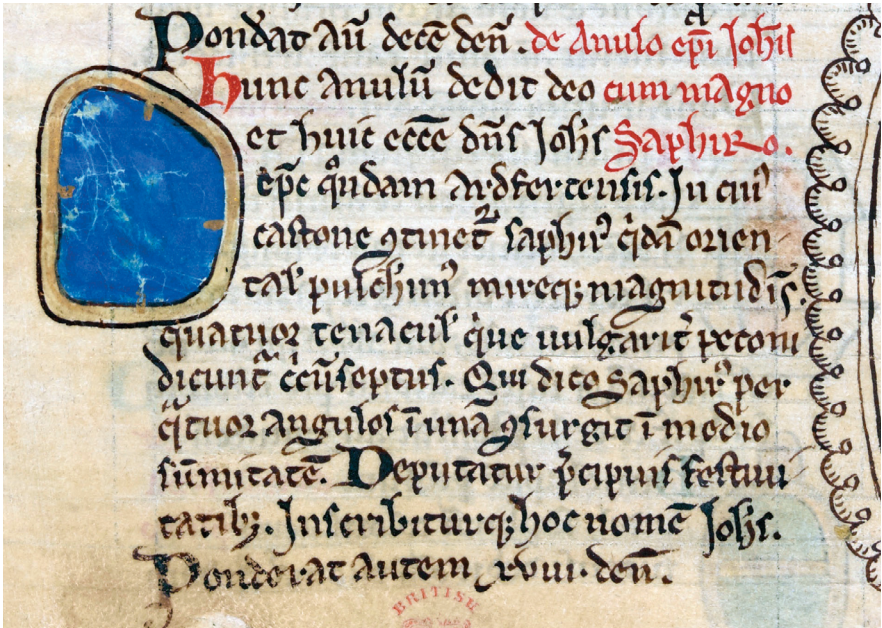 Ponđat aū decē deñ. de Anulo ep̄i Joh̄is
hunc anulū dedit deo cum magno
et huic eccē dn̄s Joh̄s Saphiro.
ep̄c q̊ndam ardfertensis. In cuiꝰ
castone ꝯtinet᷑ saphirꝰ q̇dā orien
tal' pulch̓imꝰ mireqꝫ magnitudīs.
quatuor tenacul' q̇ue uulgarit̓ peconi
dicunt᷑ c̓cūseptus. Qui dico Saphirꝰ per
q̄tuor angulos ī unā ꝯsurgit ī medio
sūmitatē. Deputatur p̓cipuis festiui
tatibꝫ. Inscribiturqꝫ hoc nomē Joh̄s.
Ponderat autem xviii. deñ.
BRITISH